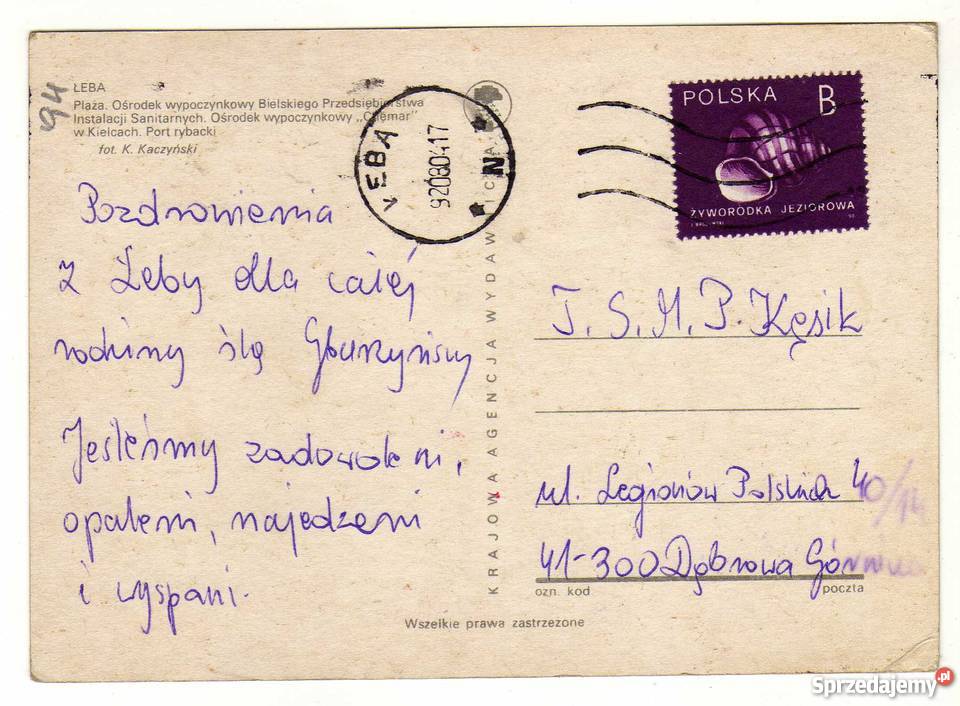 194
ŁEBA
Plaża. Ośrodek wypoczynkowy Bielskiego Przedsiębiorstwa
Instalacji Sanitarnych. Ośrodek wypoczynkowy „Chemar"
w Kielcach. Port rybacki
fot. K. Kaczyński
Pozdrowienia
z Łeby dla całej
rodziny ślą
Jesteśmy zadowoleni,
opaleni, najedzeni
i wyspani.
ŁEBA
92080417
N
KRAJOWA AGENCJA WYDAWNICZA
POLSKA B
ŻYWORODKA JEZIOROWA
T. S. M. P. Kęsik
ul. Legionów Polskich 40/14
41-300 Dąbrowa Górnicza
ozn. kod poczta
Wszelkie prawa zastrzeżone
Sprzedajemy.pl